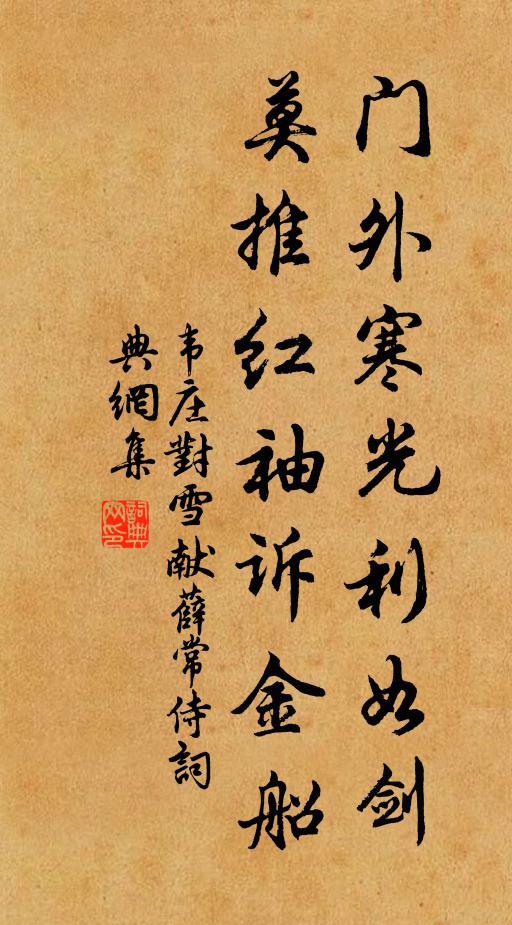 门外寒光利如剑
莫推红袖诉金船
韦庄對雪献薛常侍詞
典網集
詞典
网印